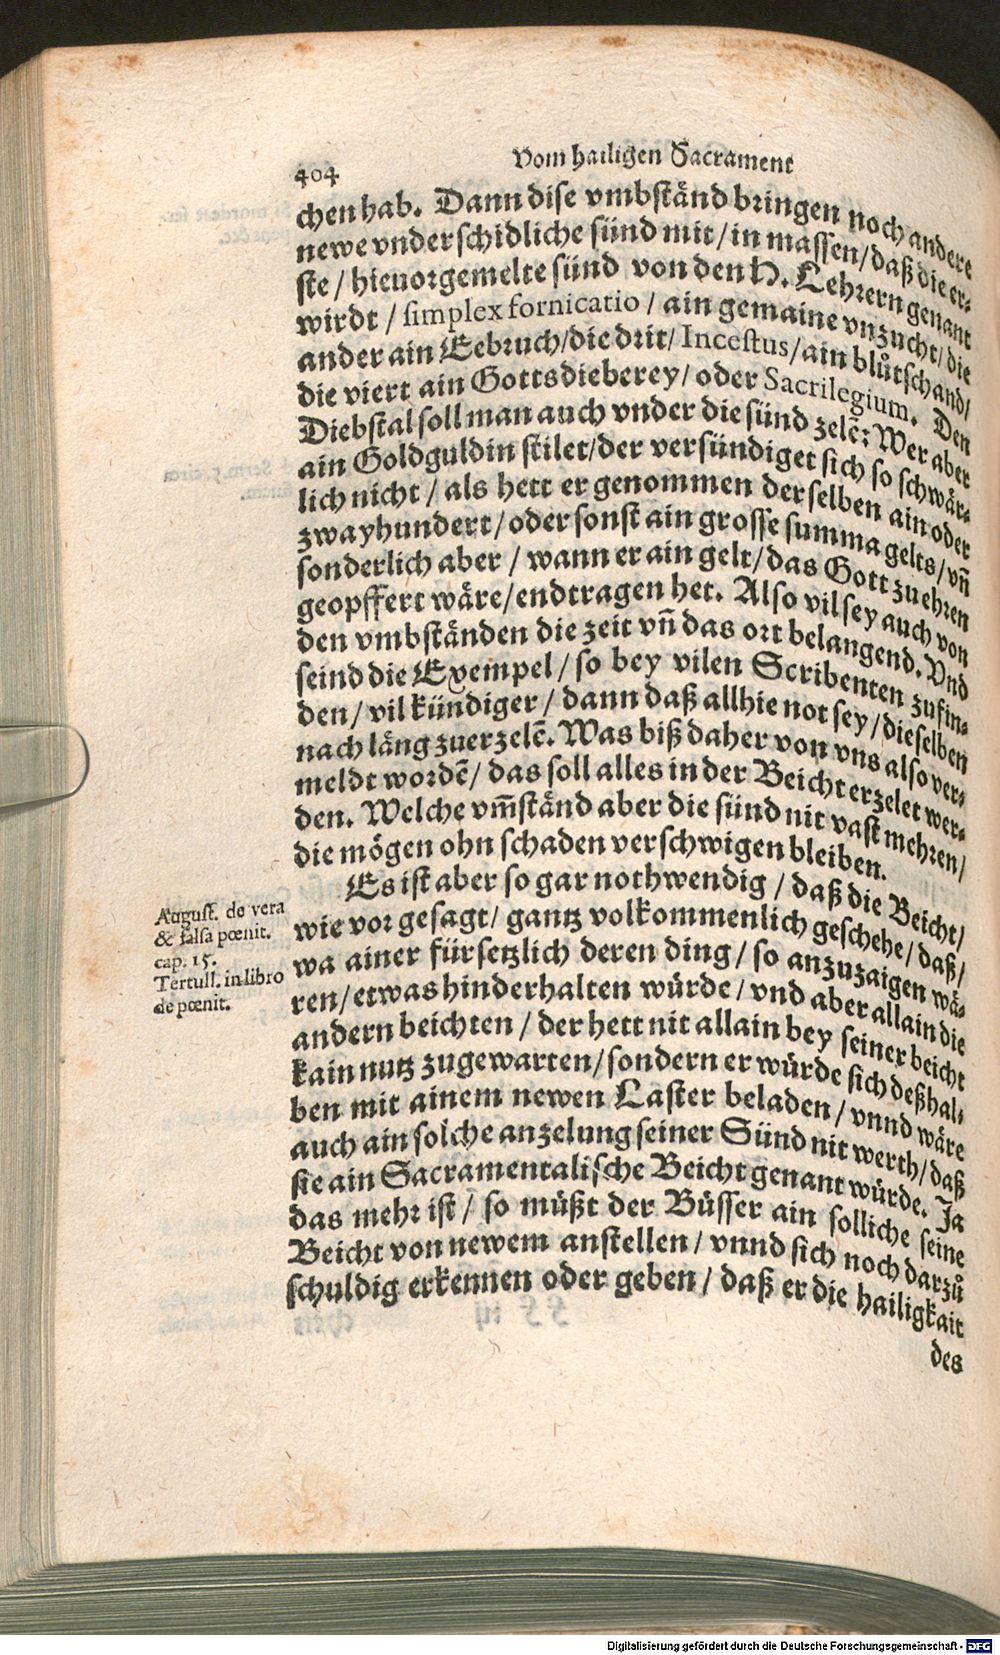 404
Vom hailigen Sacrament
chen hab. Dann dise vmbständ bringen noch andere
newe vnderschidliche sünd mit/ in massen/ daß die er-
ste/ hieuorgemelte sünd von den H. Lehrern genant
wirdt/ simplex fornicatio/ ain gemaine vnzucht/ die
ander ain Eebruch/ die drit/ Incestus/ ain blůtschand/
die viert ain Gottsdieberey/ oder Sacrilegium. Den
Diebstal soll man auch vnder die sünd zelē: Wer aber
ain Goldguldin stilet/ der versündiget sich so schwär-
lich nicht/ als hett er genommen derselben ain oder
zwayhundert/ oder sonst ain grosse summa gelts/ vn̄
sonderlich aber/ wann er ain gelt/ das Gott zu ehren
geopffert wäre/ endtragen het. Also vil sey auch von
den vmbständen die zeit vn̄ das ort belangend. Vnd
seind die Exempel/ so bey vilen Scribenten zufin-
den/ vil kündiger/ dann daß allhie not sey/ dieselben
nach läng zuerzelē. Was biß daher von vns also ver-
meldt wordē/ das soll alles in der Beicht erzelet wer-
den. Welche vm̄ständ aber die sünd nit vast mehren/
die mögen ohn schaden verschwigen bleiben.
Es ist aber so gar nothwendig/ daß die Beicht/
wie vor gesagt/ gantz volkommenlich geschehe/ daß/
wa ainer fürsetzlich deren ding/ so anzuzaigen wä-
ren/ etwas hinderhalten würde/ vnd aber allain die
andern beichten/ der hett nit allain bey seiner beicht
kain nutz zugewarten/ sondern er würde sich deßhal-
ben mit ainem newen Laster beladen/ vnnd wäre
auch ain solche anzelung seiner Sünd nit werth/ daß
sie ain Sacramentalische Beicht genant würde. Ja
das mehr ist/ so müßt der Büsser ain solliche seine
Beicht von newem anstellen/ vnnd sich noch darzů
schuldig erkennen oder geben/ daß er die hailigkait
des
August. de vera
& falsa pœnit.
cap. 15.
Tertull. in libro
de pœnit.
Digitalisierung gefördert durch die Deutsche Forschungsgemeinschaft - DFG